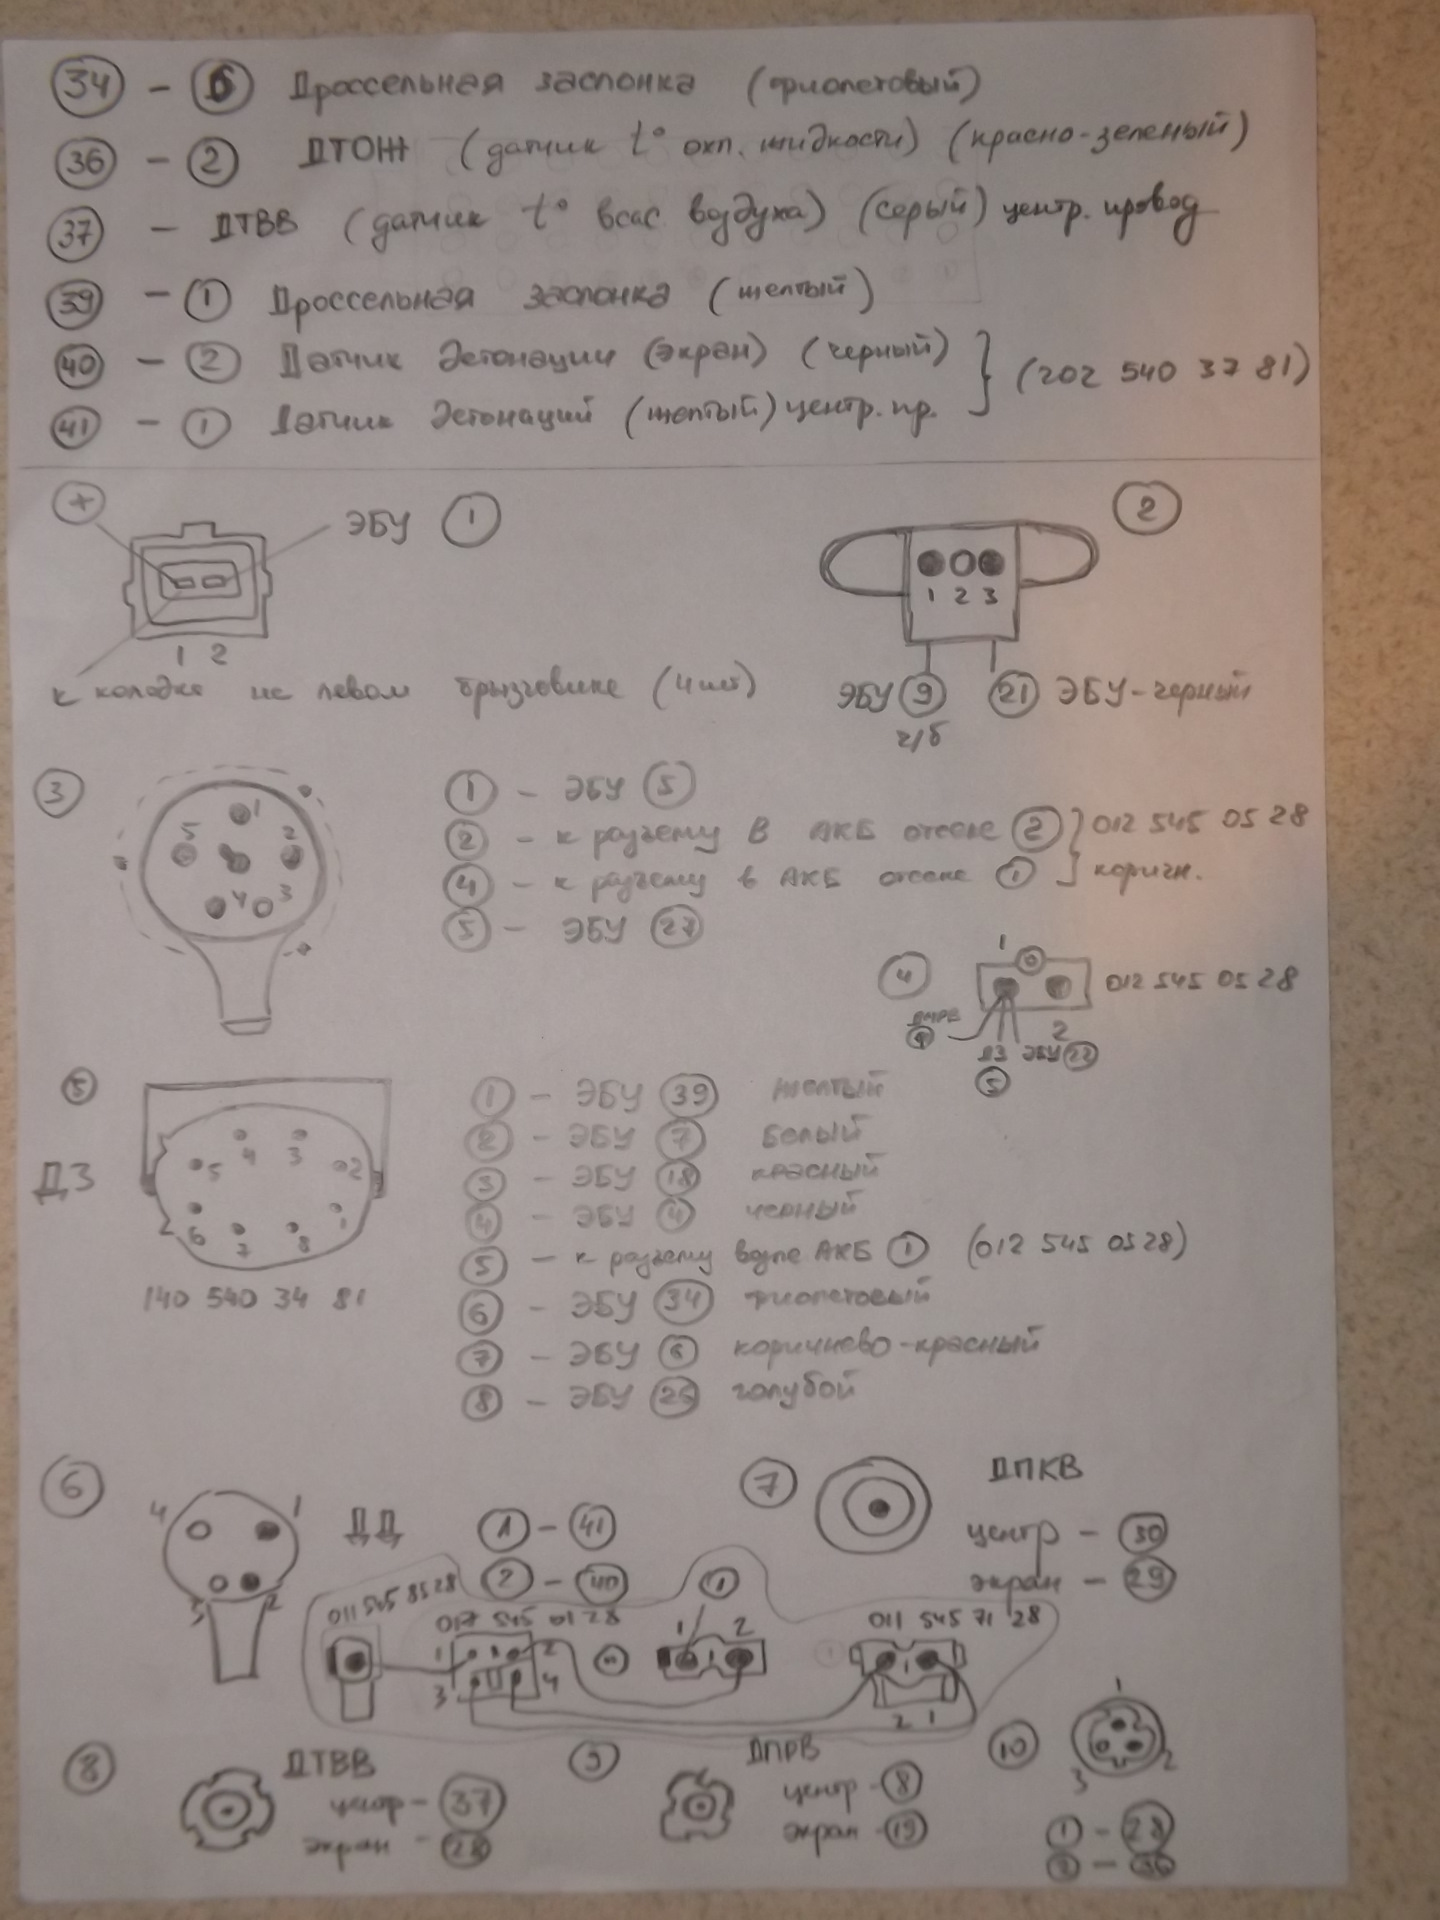 34 - 6 Дроссельная заслонка (фиолетовый)
36 - 2 ДТОЖ (датчик t° охл. жидкости) (красно-зеленый)
37 - ДТВВ (датчик t° всас воздуха) (серый) центр. провод
39 - 1 Дроссельная заслонка (желтый)
40 - 2 Датчик детонации (экран) (черный)
41 - 1 Датчик детонаций (желтый) центр. пр.
(202 540 37 81)
+
ЭБУ 1
1 2
к колодке на левом брызговике (4 шт)
2
1 2 3
ЭБУ 9
ч/б
21 ЭБУ-черный
3
1
5 2
4 3
1 - ЭБУ 5
2 - к разъему в АКБ отсеке 2
4 - к разъему в АКБ отсеке 1
012 545 05 28
коричн.
5 - ЭБУ 27
4
1
012 545 05 28
2
ДМРВ 4
ДЗ 5
ЭБУ 23
5
ДЗ
4 3
5 2
6 1
7 8
140 540 34 81
1 - ЭБУ 39 желтый
2 - ЭБУ 7 белый
3 - ЭБУ 18 красный
4 - ЭБУ 4 черный
5 - к разъему возле АКБ 1 (012 545 05 28)
6 - ЭБУ 34 фиолетовый
7 - ЭБУ 6 коричнево-красный
8 - ЭБУ 25 голубой
6
4 1
3 2
ДД
1 - 41
2 - 40
7
ДПКВ
центр - 30
экран - 29
011 545 85 28
017 545 01 28
1 2
3 4
1
1 2
011 545 71 28
2 1
8
ДТВВ
центр - 37
экран - 28
9
ДПРВ
центр - 8
экран - 19
10
1
2
3
1 - 28
2 - 36